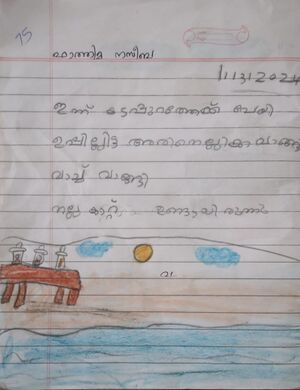 15
ഫാത്തിമ നസീബ
11/3/2024
ഇന്ന് കടപ്പുറത്തേക്ക് പോയി
ഉപ്പിലിട്ട അരിനെല്ലിക്ക വാങ്ങി
വാച്ച് വാങ്ങി
നല്ല കാറ്റ് ഉണ്ടായിരുന്നു